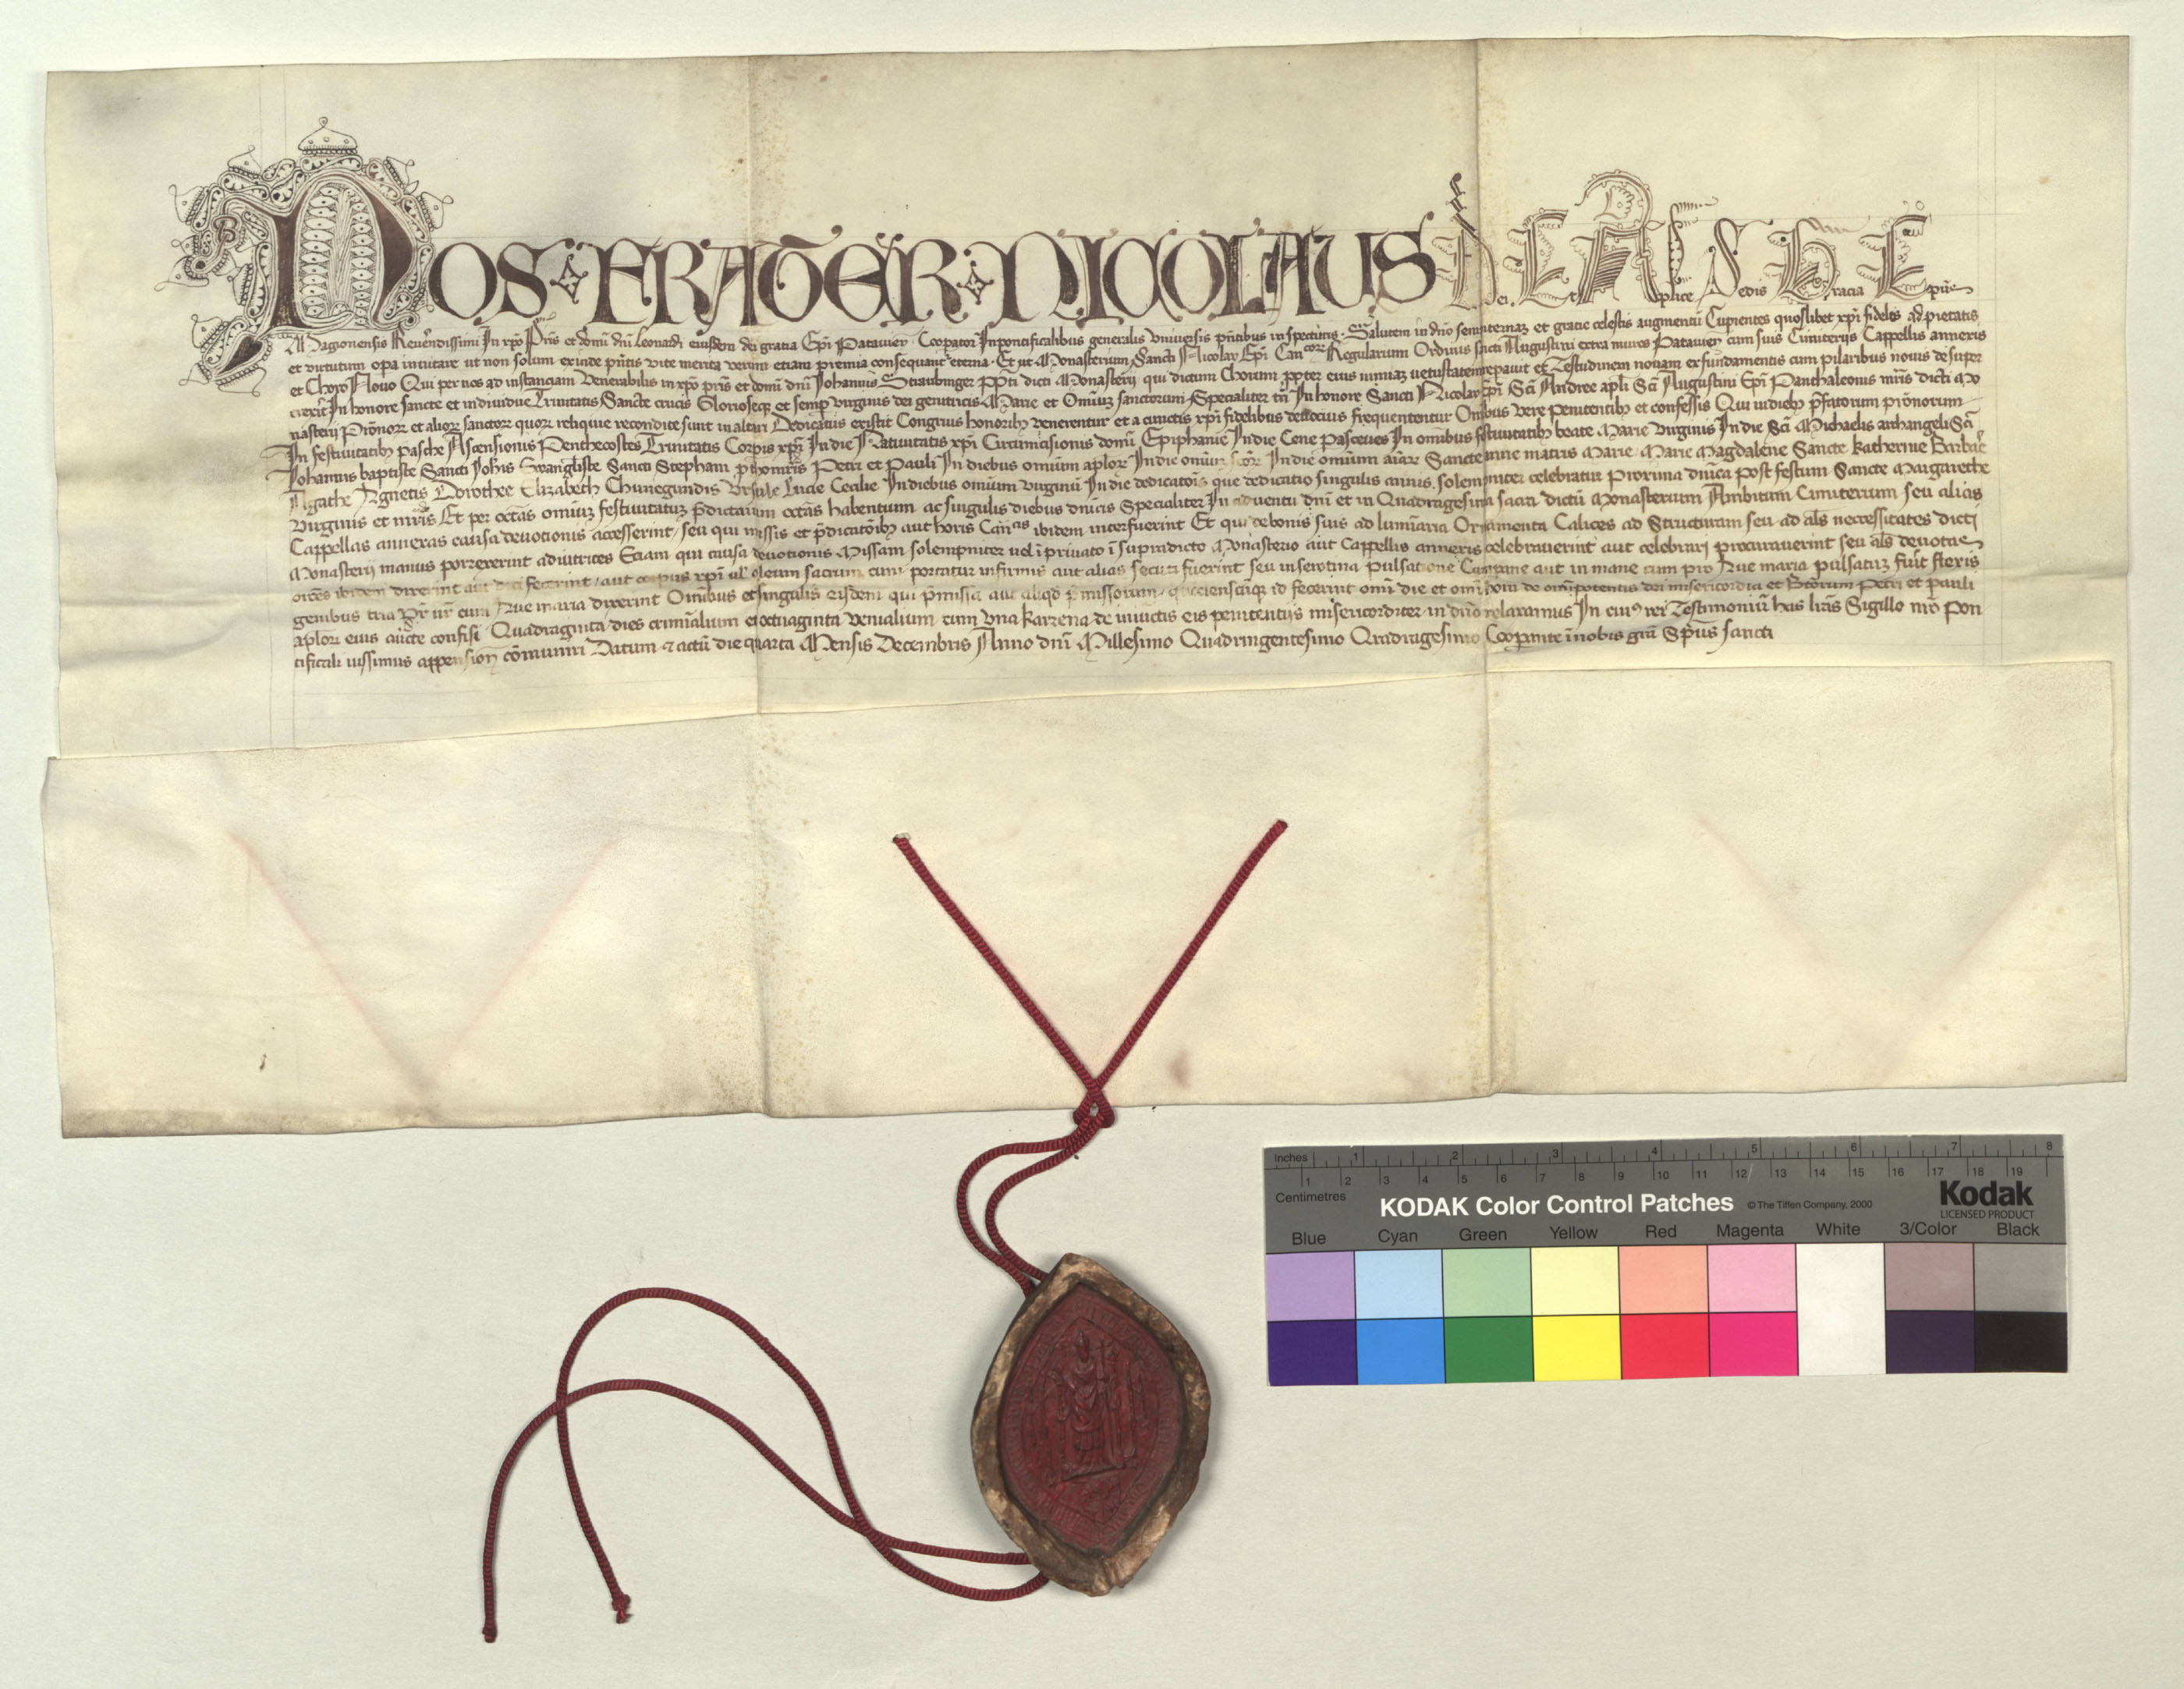 NOS FRATER NICOLAUS Dei Et Aplice Sedis Gracia Epus
Magionensis Reverendissimi In xpo Pris et domi dni Leonardi eiusdem dei gratia Epi Patavien Coopator In pontificalibus generalis Universis pntibus inspecturis Salutem in dno sempiternaz et gratie celestis augmentu Cupientes quoslibet xpi fideles ad pietatis
et virtutum opa invitare ut non solum exinde pntis vite merita verum etiam premia consequant eterna Et ut Monasterium Sancti Nicolay Epi Cancorz Regularium Ordinis sancti Augustini extra muros Patavien cum suis Cimiterijs Cappellis annexis
et Choro Novo Qui per nos ad instanciam Venerabilis in xpo pris et domi dni Johannis Straubinger Ppti dicti Monasterij qui dictum Chorum ppter eius nimiaz vetustatem repavit et Testudinem novam ex fundamentis cum pilaribus novis desuper
erexit In honore sancte et individue Trinitatis Sancte crucis Glorioseqz et semp virginis dei genitricis Marie et Omniuz sanctorum Specialiter tn In honore Sancti Nicolay Epi Sci Andree apli Sci Augustini Epi Panthaleonis mris dicti Mo
nasterij Pronorz et aliorz sanctorz quorz reliquie recondite sunt in altari Dedicatus existit Congruis honoribz venerentur et a cunctis xpi fidelibus devocius frequententur Omibus vere penitentibz et confessis Qui in diebz pfatorum pronorum
In festivitatibz pasche Ascensionis Penthecostes Trinitatis Corpis xpi In die Nativitatis xpi Circumcisionis domi Epiphanie In die Cene Pasceves In omibus festivitatibz beate Marie virginis In die Sci Michaelis archangeli Sci
Johannis baptiste Sancti Johis Ewangliste Sancti Stephani pthomris Petri et Pauli In diebus omium aplorz In die omium scor In die omium aiarz Sancte anne matris Marie Marie Magdalene Sancte Katherine Barbare
Agathe Agnetis Dorothee Elizabeth Chunegundis Ursule Lucie Cecilie In diebus omium virginu In die dedicatois que dedicatio singulis annis solempniter celebratur Proxima dnica post festum Sancte Margarethe
virginis et mris Et per octas omiuz festivitatuz pdictarum octas habentium ac singulis diebus dnicis Specialiter In adventu dni et in Quadragesima sacri dictu Monasterium Ambitum Cimiterium seu alias
Cappellas annexas causa devotionis accesserint seu qui missis et pdicatoibz aut horis Canicas ibidem interfuerint Et qui de bonis suis ad luminaria Ornamenta Calices ad Structuram seu ad als neccessitates dicti
Monasterij manus porrexerint adiutrices Etiam qui causa devotionis Missam solempniter vel i privato i supradicto Monasterio aut Cappellis annexis celebraverint aut celebrari procuraverint seu als devotas
oroes ibidem dixerint aut dici fecerint aut corpus xpi vl oleum sacrum cum portatur infirmis aut alias secuti fuerint seu in serotina pulsatione Campane aut in mane cum pro Ave maria pulsatuz fuit flexis
genibus tria Pr nr cum Ave maria dixerint Omibus et singulis eisdem qui pmissa aut aliqd pmissorum quociensciqz id fecerint omi die et omi hora de omipotentis dei misericordia et Btorum Petri et pauli
aplorz eius aucte confisi Quadraginta dies criminalium et octuaginta venialium cum Una karrena de iniunctis eis penitentijs misericorditer in dno relaxamus In cuis rei Testimoniu has lras Sigillo nro Pon
tificali iussimus appension comuniri Datum & actu die quarta Mensis Decembris Anno dni Millesimo Quadringentesimo Quadragesimo Cooperante i nobis gra Spus sancti
inches 1 2 3 4 5 6 7 8
Centimetres 1 2 3 4 5 6 7 8 9 10 11 12 13 14 15 16 17 18 19
KODAK Color Control Patches © The Tiffen Company, 2000 Kodak
LICENSED PRODUCT
Blue Cyan Green Yellow Red Magenta White 3/Color Black